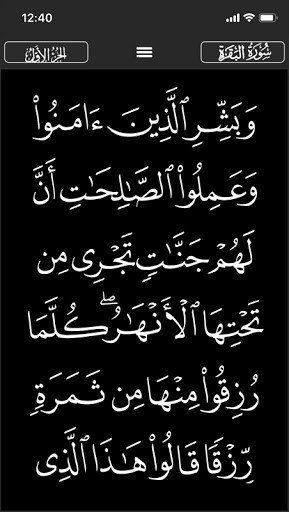 12:40
الجزء الأول
سورة البقرة
وَبَشِّرِ ٱلَّذِينَ ءَامَنُوا۟
وَعَمِلُوا۟ ٱلصَّـٰلِحَـٰتِ أَنَّ
لَهُمْ جَنَّـٰتٍ تَجْرِى مِن
تَحْتِهَا ٱلْأَنْهَـٰرُ ۖ كُلَّمَا
رُزِقُوا۟ مِنْهَا مِن ثَمَرَةٍ
رِّزْقًا قَالُوا۟ هَـٰذَا ٱلَّذِى